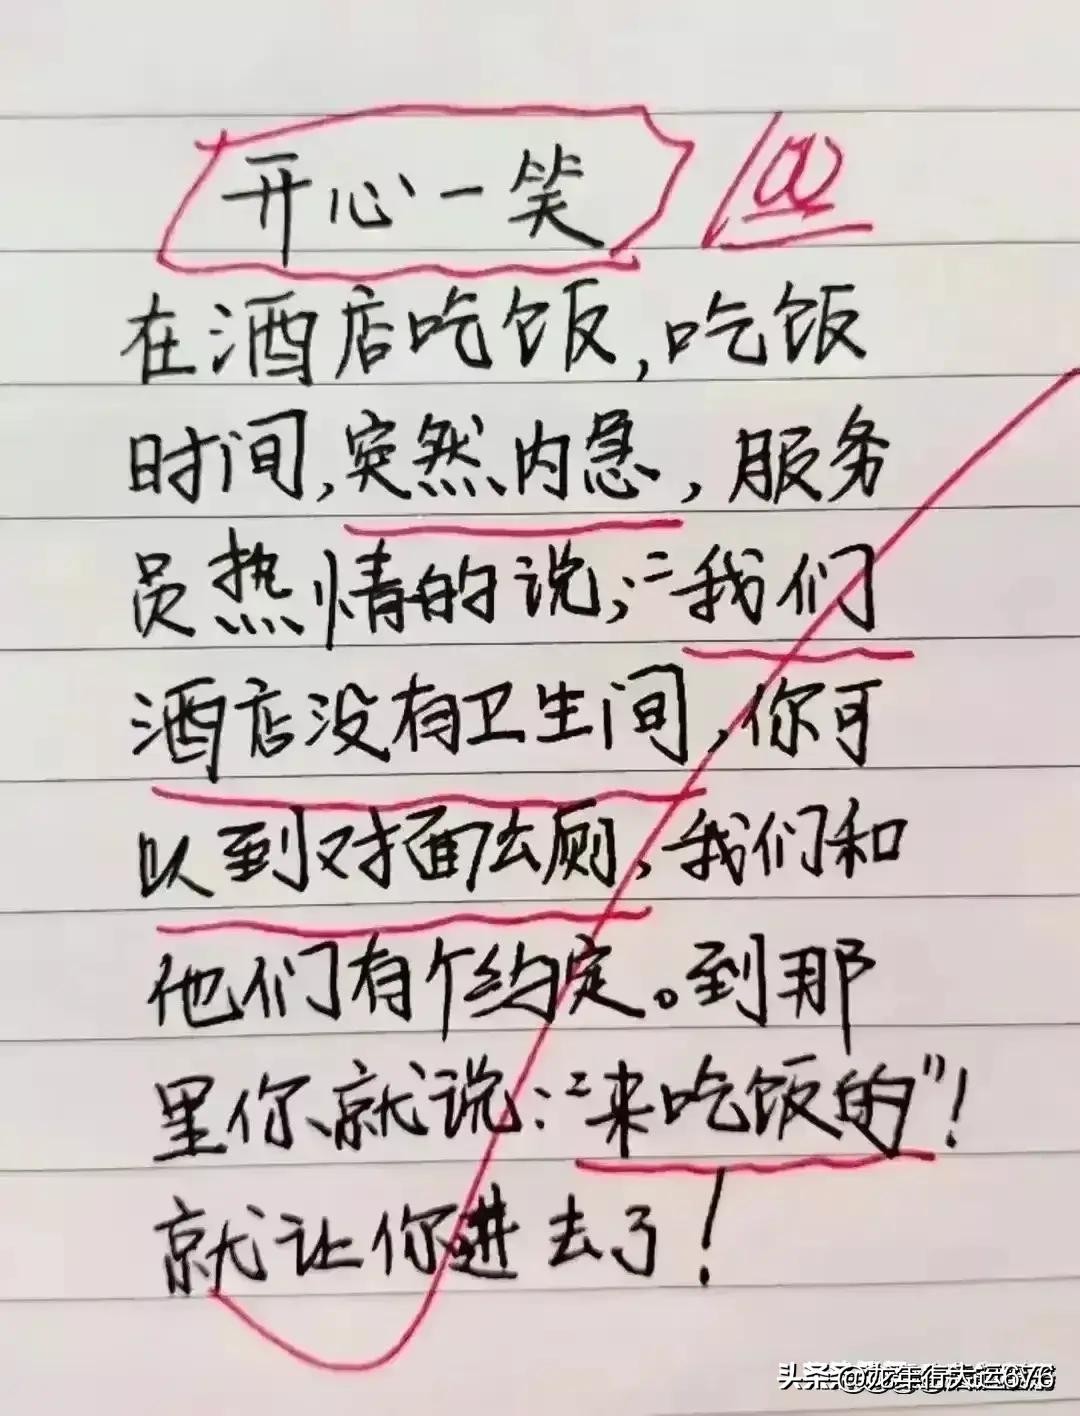 开心一笑
在酒店吃饭,吃饭
时间,突然内急,服务
员热情的说;"我们
酒店没有卫生间,你可
以到对面公厕,我们和
他们有个约定。到那
里你就说:"来吃饭的"!
就让你进去了!
@龙年行大运676